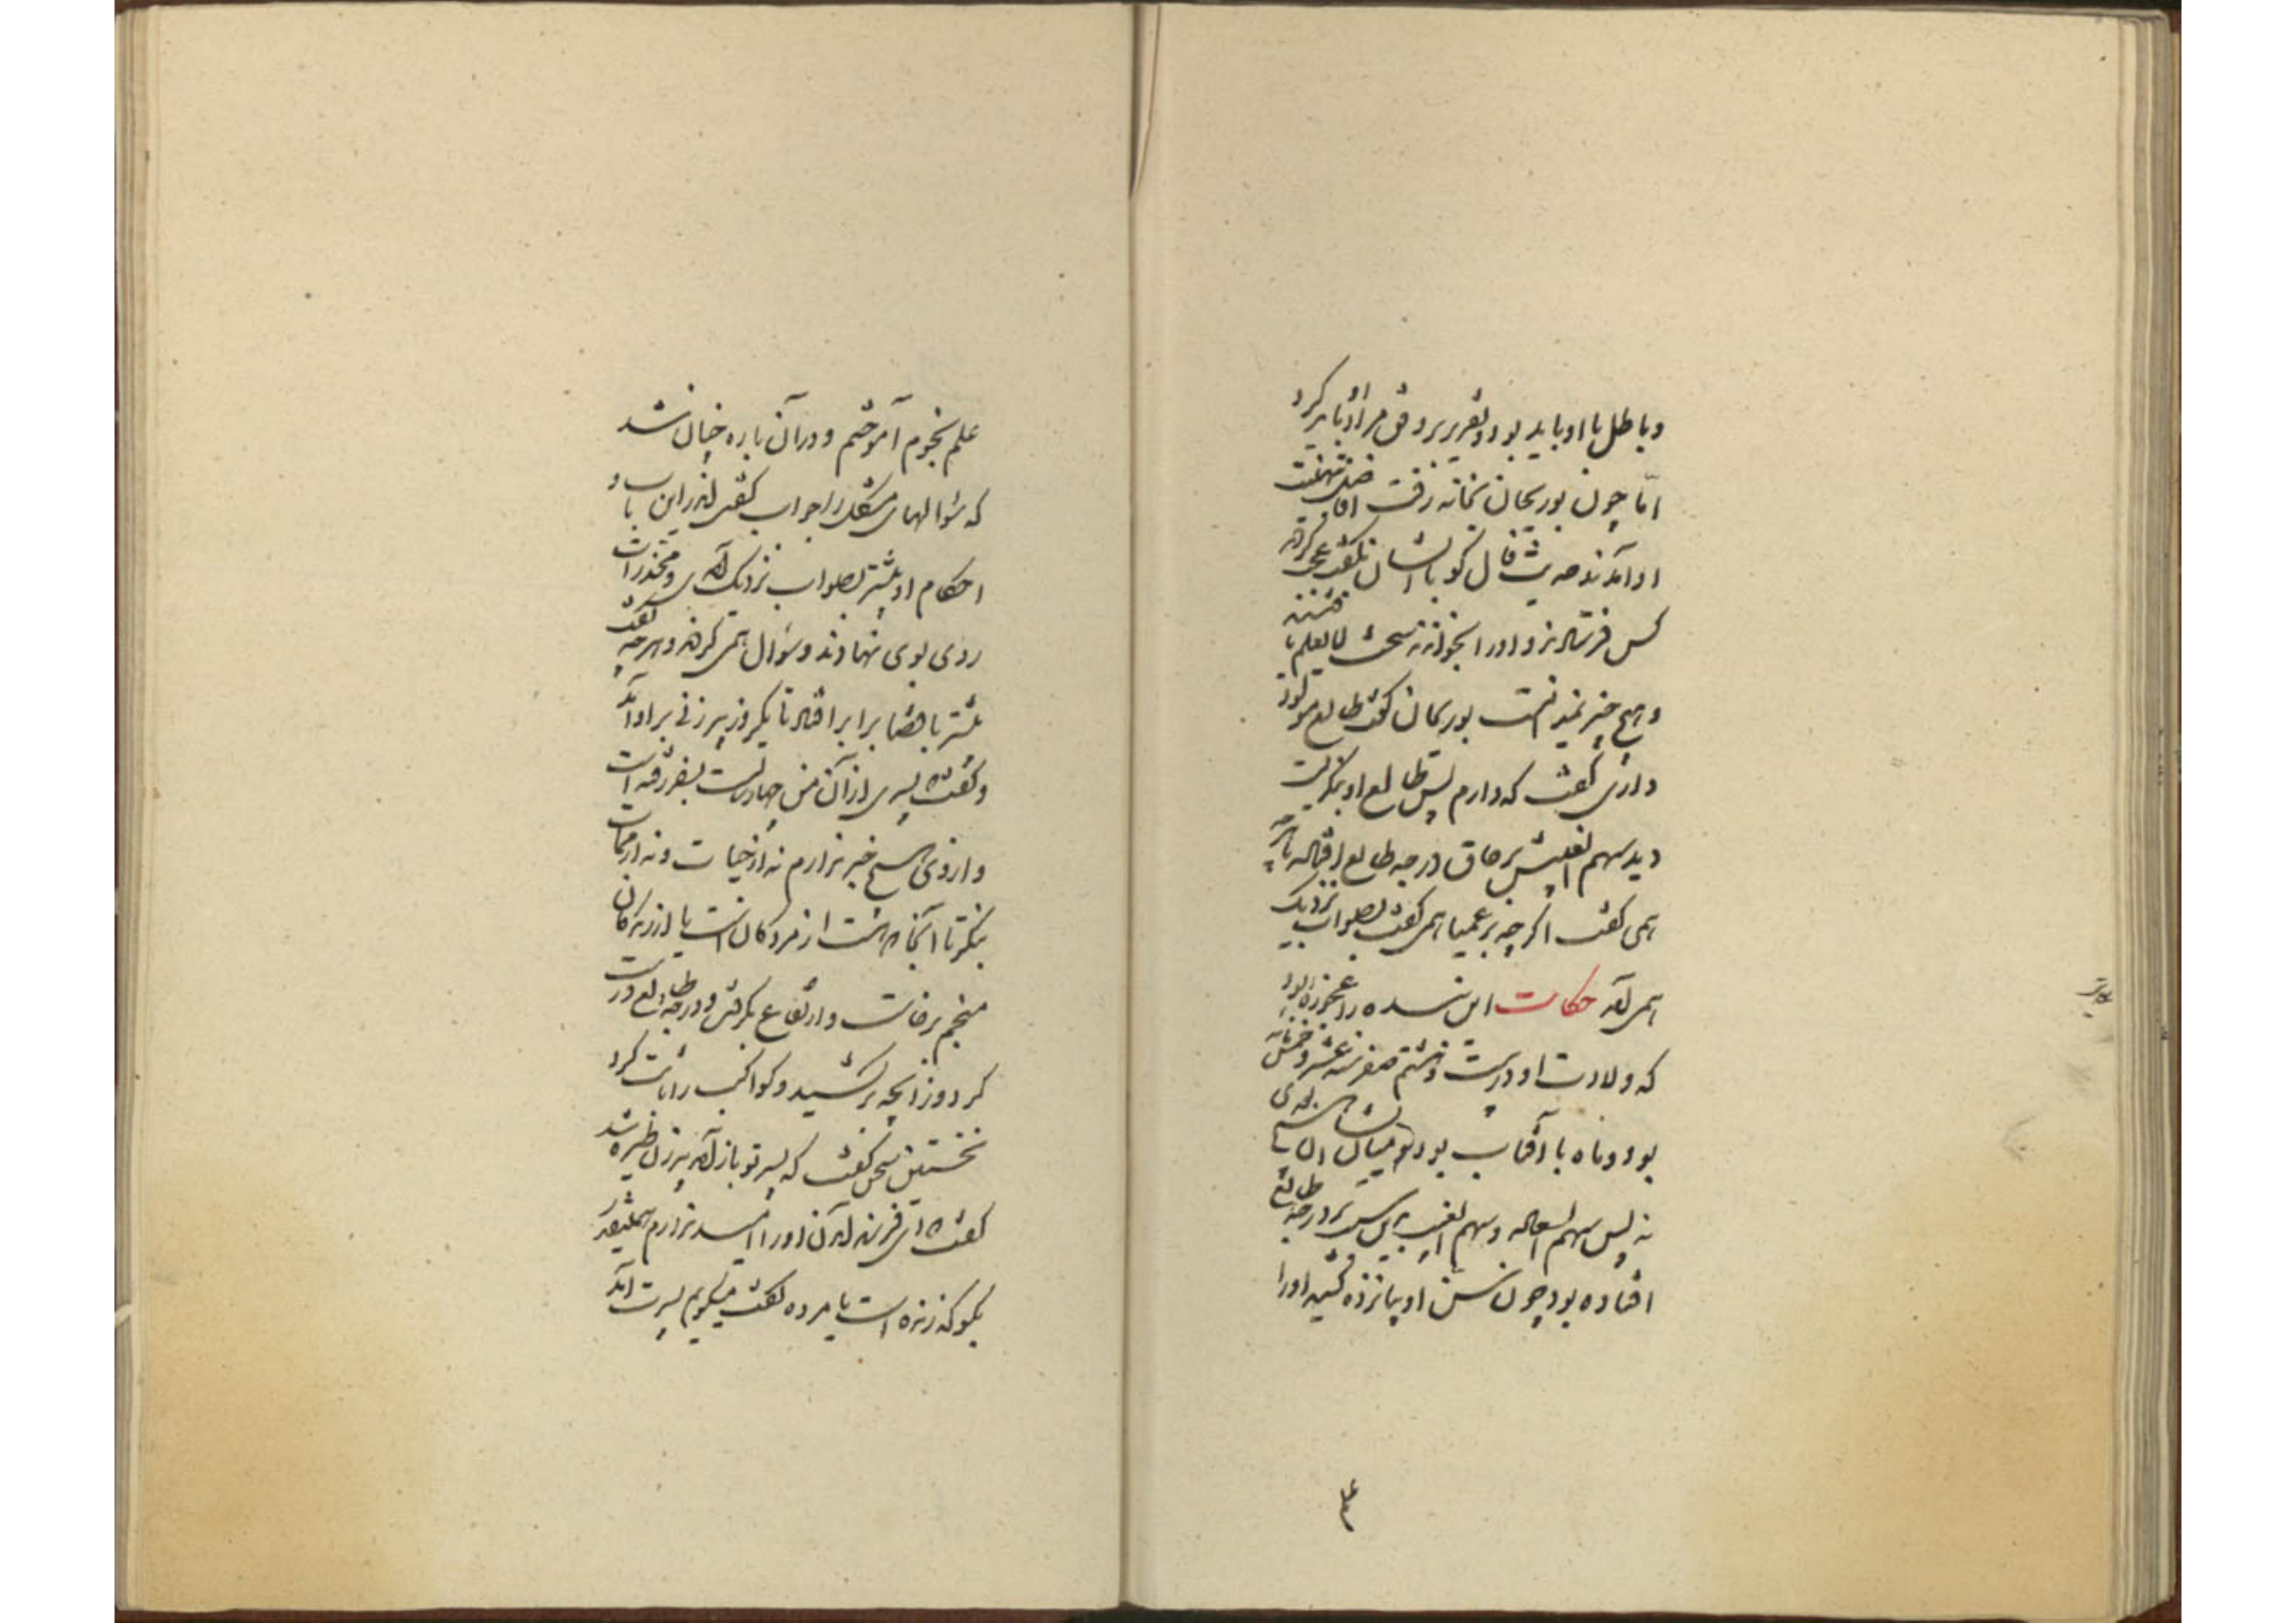 و باطل با او باید بود و تقریر بر وفق مراد او باید کرد
اما چون بوریحان بخانه رفت افاضل بتهنیت
او آمدند حدیث فال گو با ایشان بگفت عجب کردند
کس فرستادند و او را بخواندند سخت لایعلم یافتندش
و هیچ چیز نمیدانست بوریحان گفت طالع مولود
داری گفت که دارم پس طالع او بنگریست
دید سهم الغیبش بر حاق درجه طالع افتاده تا هرچه
همی گفت اگر چه بر عمیا همی گفت بصواب نزدیک
همی آمد حکایت این بنده را عجوزه بود
که ولادت او در بیست و هشتم صفر سنه عشر و خمسمائه
بود و ماه با آفتاب بود و میان ایشان هیچ بعدی
نه پس سهم السعاده و سهم الغیب بدین سبب بر درجه طالع
افتاده بود چون سن او بپانزده کشید او را
علم نجوم آموختم و در آن باره چنان شد
که سؤالهای مشکل را جواب گفتی اندر این باب و
احکام او بیشتر بصواب نزدیک آمدی و مخدرات
روی بوی نهادند و سؤال همی کردند و هرچه گفت
بیشتر با قضا برابر افتاد تا یکروز پیرزنی بر او آمد
و گفت پسری از آن من چهار سالست بسفر رفته است
و از وی هیچ خبر ندارم نه از حیات و نه از ممات
بنگر تا آنجا که هست از مردگان است یا از زندگان
منجم برخاست و ارتفاع بگرفت و درجه طالع درست
کرد و زایچه برکشید و کواکب را ثابت کرد
نخستین سخن گفت که پسر تو باز آمد پیرزن طیره شد
گفت ای فرزند آمدن او را امید ندارم همینقدر
بگو که زنده است یا مرده گفت میگویم پسرت آمد